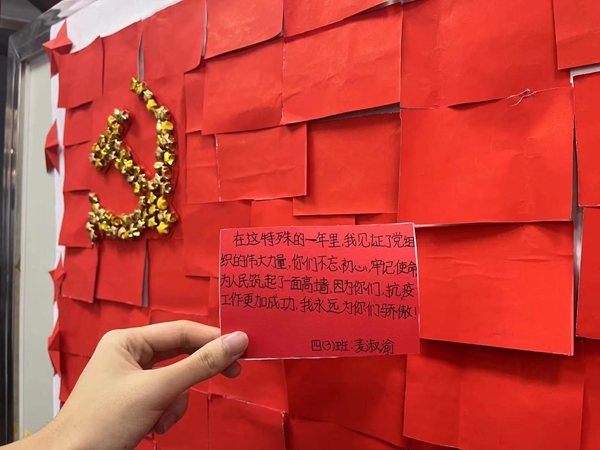 在这特殊的一年里,我见证了党组
织的伟大力量,你们不忘初心,牢记使命
为人民筑起了一面高墙,因为你们,抗疫
工作更加成功,我永远为你们骄傲!
四(3)班:麦淑渝